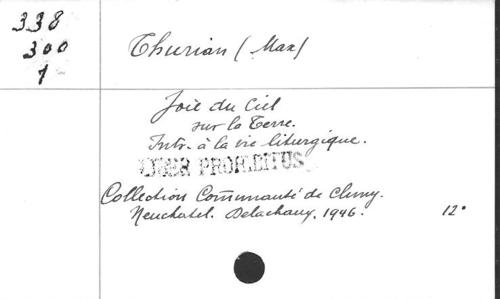 338
300
1
Thurian (Max)
Joie du Ciel
sur la Terre.
Intr. à la vie liturgique.
LIBER PROHIBITUS
Collection Communauté de Cluny.
Neuchatel. Delachaux. 1946. 12°